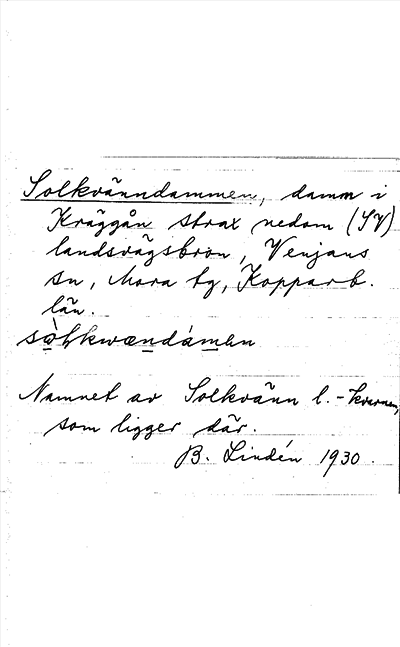 Solkvänndammen, damm i
Kräggån strax nedom (SV)
landsvägsbron, Venjans
sn, Mora tg, Kopparb.
län.
Namnet av Solkvänn l. -kvarnen,
som ligger där.
B. Lindén 1930.